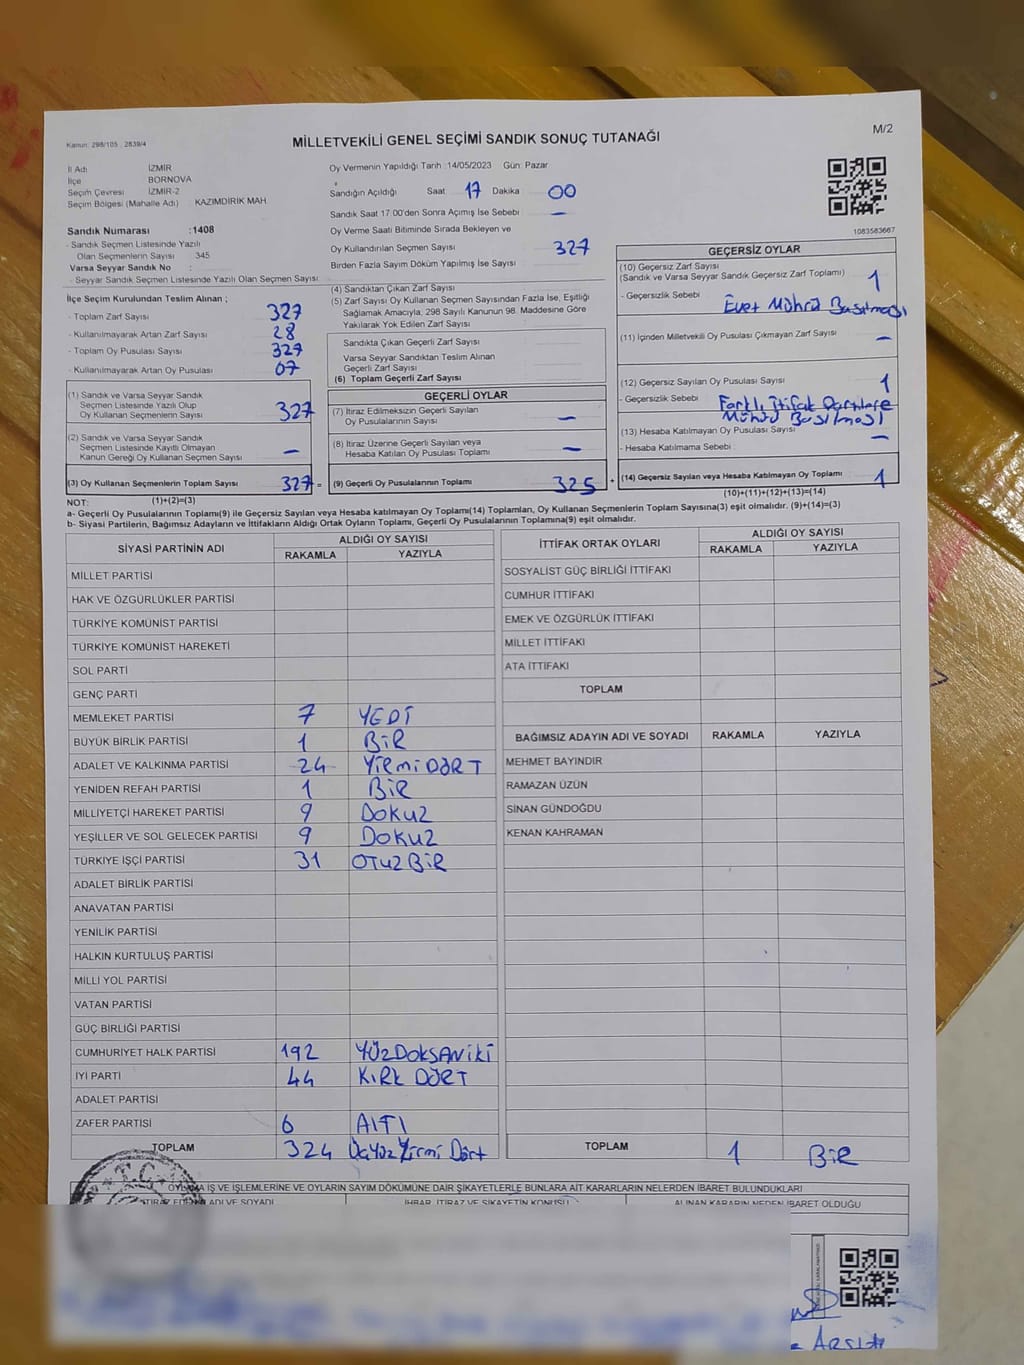 M/2
Kanun: 298/105 , 2839/4
MİLLETVEKİLİ GENEL SEÇİMİ SANDIK SONUÇ TUTANAĞI
İl Adı İZMİR
İlçe BORNOVA
Seçim Çevresi İZMİR-2
Seçim Bölgesi (Mahalle Adı) KAZIMDIRIK MAH
Sandık Numarası :1408
- Sandık Seçmen Listesinde Yazılı
Olan Seçmenlerin Sayısı 345
Varsa Seyyar Sandık No :
- Seyyar Sandık Seçmen Listesinde Yazılı Olan Seçmen Sayısı:
Oy Vermenin Yapıldığı Tarih :14/05/2023 Gün: Pazar
Sandığın Açıldığı Saat 17 Dakika 00
Sandık Saat 17:00'den Sonra Açımış İse Sebebi : —
Oy Verme Saati Bitiminde Sırada Bekleyen ve
Oy Kullandırılan Seçmen Sayısı 327
Birden Fazla Sayım Döküm Yapılmış İse Sayısı
1083583667
İlçe Seçim Kurulundan Teslim Alınan ;
- Toplam Zarf Sayısı 327
- Kullanılmayarak Artan Zarf Sayısı 28
- Toplam Oy Pusulası Sayısı 327
- Kullanılmayarak Artan Oy Pusulası 07
(1) Sandık ve Varsa Seyyar Sandık
Seçmen Listesinde Yazılı Olup
Oy Kullanan Seçmenlerin Sayısı 327
(2) Sandık ve Varsa Seyyar Sandık
Seçmen Listesinde Kayıtlı Olmayan
Kanun Gereği Oy Kullanan Seçmen Sayısı —
(3) Oy Kullanan Seçmenlerin Toplam Sayısı 327 =
(1)+(2)=(3)
(4) Sandıktan Çıkan Zarf Sayısı
(5) Zarf Sayısı Oy Kullanan Seçmen Sayısından Fazla İse, Eşitliği
Sağlamak Amacıyla, 298 Sayılı Kanunun 98. Maddesine Göre
Yakılarak Yok Edilen Zarf Sayısı
Sandıkta Çıkan Geçerli Zarf Sayısı
Varsa Seyyar Sandıktan Teslim Alınan
Geçerli Zarf Sayısı
(6) Toplam Geçerli Zarf Sayısı
GEÇERLİ OYLAR
(7) İtiraz Edilmeksizin Geçerli Sayılan
Oy Pusulasının Sayısı —
(8) İtiraz Üzerine Geçerli Sayılan veya
Hesaba Katılan Oy Pusulası Toplamı —
(9) Geçerli Oy Pusulalarının Toplamı 325 +
GEÇERSİZ OYLAR
(10) Geçersiz Zarf Sayısı
(Sandık ve Varsa Seyyar Sandık Geçersiz Zarf Toplamı) 1
- Geçersizlik Sebebi Evet Mührü Basılması
(11) İçinden Milletvekili Oy Pusulası Çıkmayan Zarf Sayısı —
(12) Geçersiz Sayılan Oy Pusulası Sayısı 1
- Geçersizlik Sebebi Farklı İttifak Partilere
Mührü Basılması
(13) Hesaba Katılmayan Oy Pusulası Sayısı —
- Hesaba Katılmama Sebebi :
(14) Geçersiz Sayılan veya Hesaba Katılmayan Oy Toplamı 1
(10)+(11)+(12)+(13)=(14)
NOT:
a- Geçerli Oy Pusulalarının Toplamı(9) ile Geçersiz Sayılan veya Hesaba Katılmayan Oy Toplamı(14) Toplamları, Oy Kullanan Seçmenlerin Toplam Sayısına(3) eşit olmalıdır. (9)+(14)=(3)
b- Siyasi Partilerin, Bağımsız Adayların ve İttifakların Aldığı Ortak Oyların Toplamı, Geçerli Oy Pusulalarının Toplamına(9) eşit olmalıdır.
SİYASİ PARTİNİN ADI ALDIĞI OY SAYISI
RAKAMLA YAZIYLA
MİLLET PARTİSİ
HAK VE ÖZGÜRLÜKLER PARTİSİ
TÜRKİYE KOMÜNİST PARTİSİ
TÜRKİYE KOMÜNİST HAREKETİ
SOL PARTİ
GENÇ PARTİ
MEMLEKET PARTİSİ 7 YEDİ
BÜYÜK BİRLİK PARTİSİ 1 BİR
ADALET VE KALKINMA PARTİSİ 24 YİRMİ DÖRT
YENİDEN REFAH PARTİSİ 1 BİR
MİLLİYETÇİ HAREKET PARTİSİ 9 DOKUZ
YEŞİLLER VE SOL GELECEK PARTİSİ 9 DOKUZ
TÜRKİYE İŞÇİ PARTİSİ 31 OTUZ BİR
ADALET BİRLİK PARTİSİ
ANAVATAN PARTİSİ
YENİLİK PARTİSİ
HALKIN KURTULUŞ PARTİSİ
MİLLİ YOL PARTİSİ
VATAN PARTİSİ
GÜÇ BİRLİĞİ PARTİSİ
CUMHURİYET HALK PARTİSİ 192 YÜZDOKSANİKİ
İYİ PARTİ 44 KIRK DÖRT
ADALET PARTİSİ
ZAFER PARTİSİ 6 ALTI
TOPLAM 324 Üçyüz Yirmi Dört
İTTİFAK ORTAK OYLARI ALDIĞI OY SAYISI
RAKAMLA YAZIYLA
SOSYALİST GÜÇ BİRLİĞİ İTTİFAKI
CUMHUR İTTİFAKI
EMEK VE ÖZGÜRLÜK İTTİFAKI
MİLLET İTTİFAKI
ATA İTTİFAKI
TOPLAM
BAĞIMSIZ ADAYIN ADI VE SOYADI RAKAMLA YAZIYLA
MEHMET BAYINDIR
RAMAZAN ÜZÜN
SİNAN GÜNDOĞDU
KENAN KAHRAMAN
TOPLAM 1 BİR
T.C.
İŞ VE İŞLEMLERİNE VE OYLARIN SAYIM DÖKÜMÜNE DAİR ŞİKAYETLERLE BUNLARA AİT KARARLARIN NELERDEN İBARET BULUNDUKLARI
ADI VE SOYADI İHBAR, İTİRAZ VE ŞİKAYETİN KONUSU ALINAN KARARIN NEDEN İBARET OLDUĞU